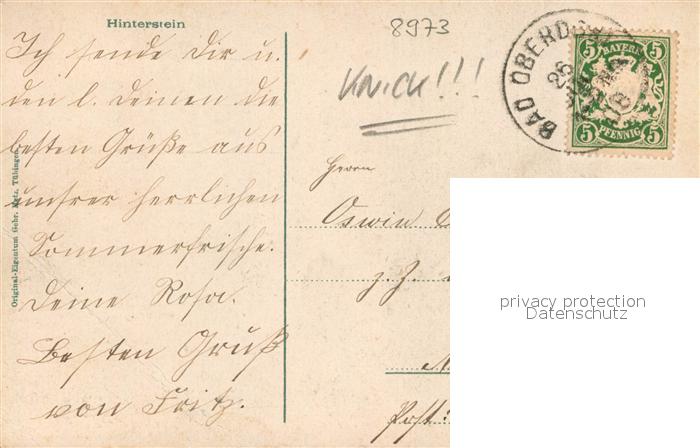 Hinterstein
8973
KNICK!!!
BAD OBERD
26
BAYERN
5 5
5 PFENNIG 5
Ich sende Dir u.
den l. Deinen die
besten Grüße aus
unsrer herrlichen
Sommerfrische.
Deine Rosa.
Besten Gruß
von Fritz.
Original-Eigentum Gebr. Metz, Tübingen.
Herrn
Oswin
z. Z.
Post:
privacy protection
Datenschutz